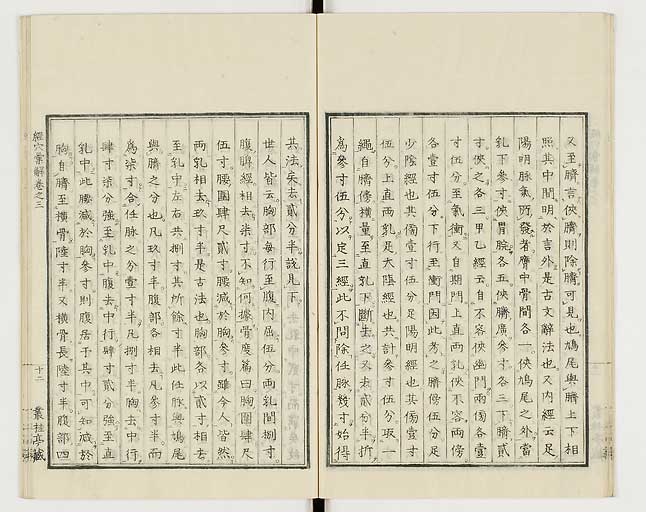 又至臍言俠臍則除臍可見也鳩尾與臍上下相
照其中間明於言外是古文辭法也又内經云足
陽明脉氣所發者膺中骨間各一俠鳩尾之外當
乳下參寸俠胃脘各五俠臍廣參寸各三下臍貳
寸俠之各三甲乙經云自不容俠幽門兩傍各壹
寸伍分至氣衝又自期門上直兩乳俠不容兩傍
各壹寸伍分下行至衝門因此考之臍傍伍分
少陰經也其傍壹寸伍分足陽明經也其傍壹寸
伍分上直兩乳足太陰經也共計參寸伍分取一
繩自臍傍横量至直乳下斷去之又去貳分半折
爲參寸伍分以定三經此不問除任脉幾寸始得
共法矣去貳分半説見下
世人皆云胸部每行至腹内屈伍分兩乳間捌寸
腹脾經相去柒寸不知何據骨度篇曰胸圍肆尺
伍寸腰圍肆尺貳寸腰減於胸參寸雖今人皆然
兩乳相去玖寸半是古法也胸部各以貳寸相去
至乳中左右共捌寸其所餘寸半此任脉與鳩尾
與臍之分也凡玖寸半腹部各相去凡參寸半而
爲柒寸合任脉之分壹寸半凡捌寸半胸去中行
肆寸柒分強至乳中腹去中行肆寸貳分強至直
乳中此腰減於胸參寸則腹居于其中可知減於
胸自臍至横骨陸寸半又横骨長陸寸半腹部四
經穴彙解卷之三
十二
叢桂亭藏